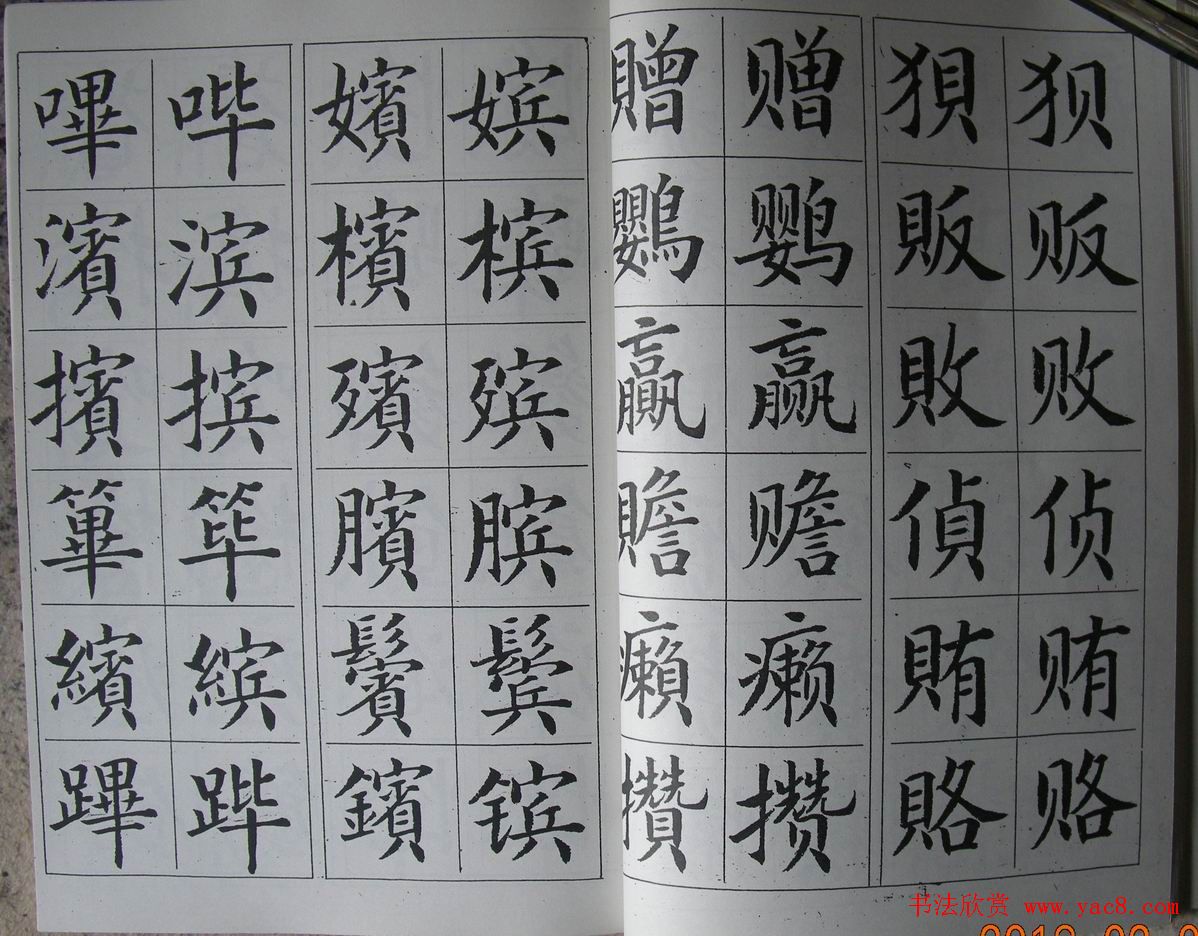 嗶 哔 嬪 嫔 贈 赠 狽 狈
濱 滨 檳 槟 鸚 鹦 販 贩
擯 摈 殯 殡 贏 赢 敗 败
篳 筚 臏 膑 贍 赡 偵 侦
繽 缤 鬢 鬓 癩 癞 賄 贿
蹕 跸 鑌 镔 攢 攒 賂 赂
书法欣赏 www.yac8.com